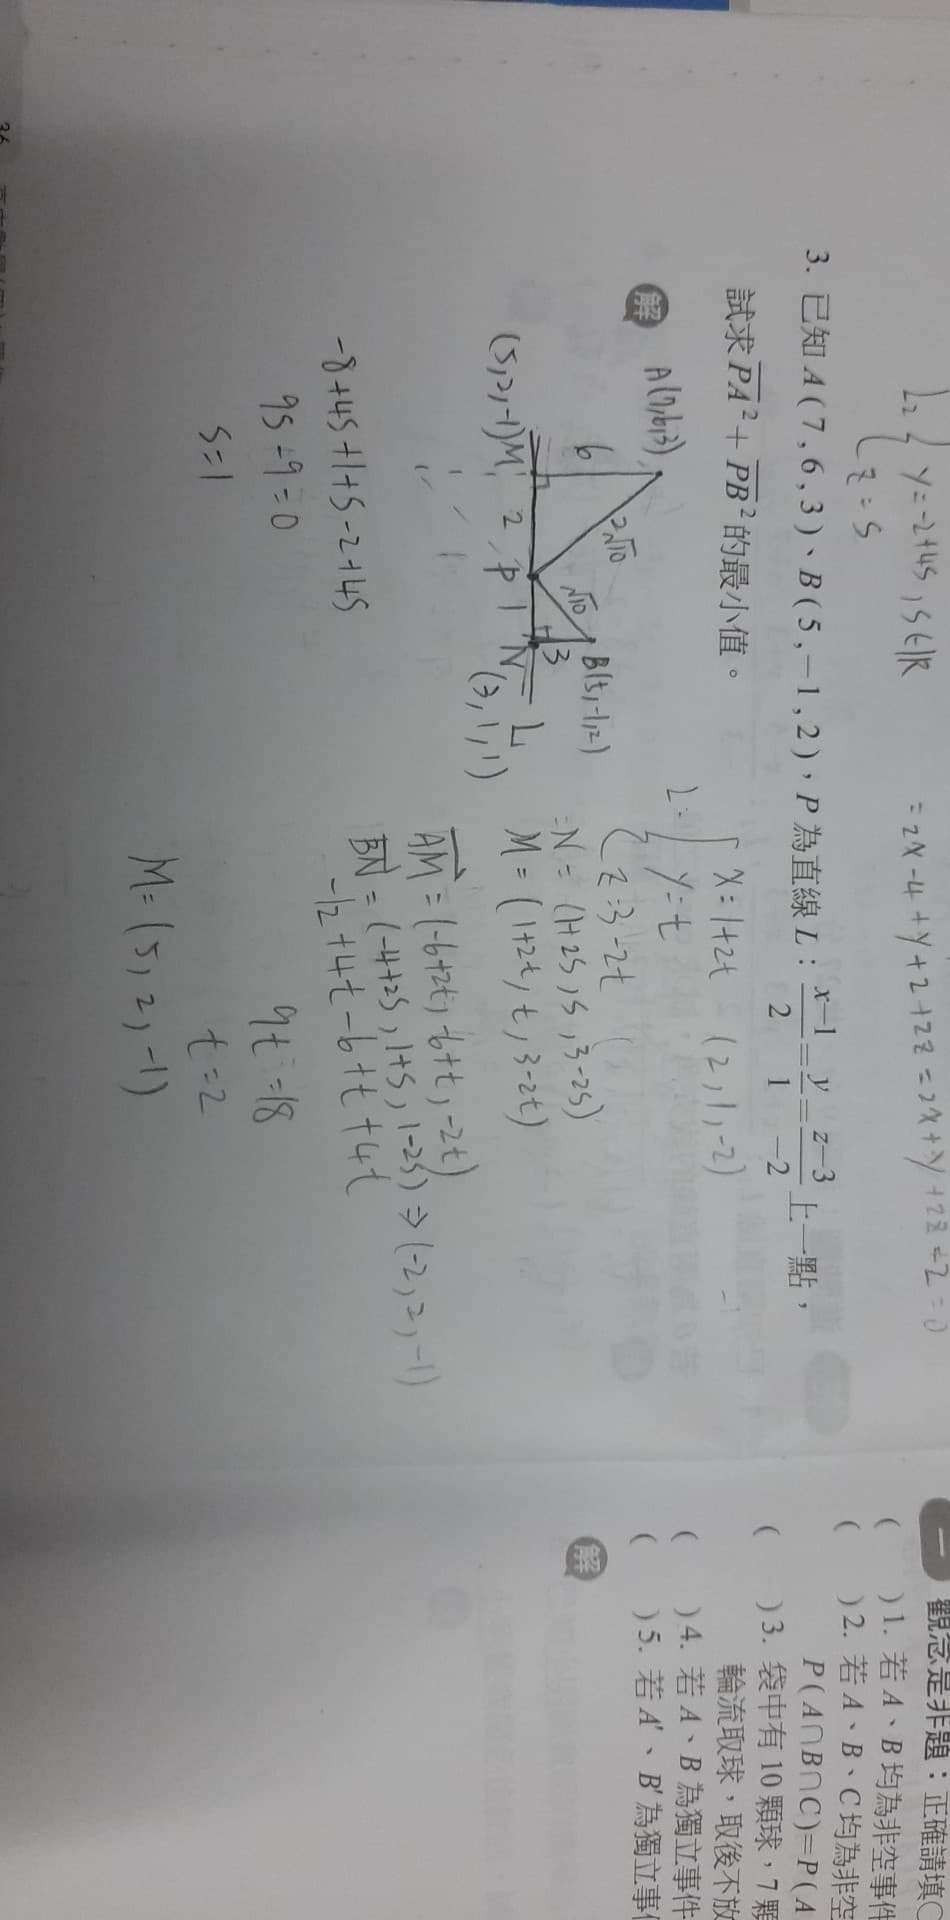 L₂ { y=-2+4s, s∈R
z=s
=2x-4+y+2+2z=2x+y+2z-2=0
3. 已知 A(7,6,3)、B(5,-1,2),P 為直線 L:(x-1)/2=y/1=(z-3)/-2 上一點,
試求 PA²+PB² 的最小值。
解
A(7,6,3)
6
2√10
√10
B(5,-1,2)
3
(5,2,-1)M
2
P
1
N
L
(3,1,1)
-8+4s+1+s-2+4s
9s-9=0
s=1
L: { x=1+2t (2,1,-2)
y=t
z=3-2t
N=(1+2s,s,3-2s)
M=(1+2t,t,3-2t)
AM=(-6+2t,-6+t,-2t)
BN=(-4+2s,1+s,1-2s)⇒(-2,2,-1)
-12+4t-6+t+4t
9t=18
t=2
M=(5,2,-1)
一 觀念是非題:正確請填○
( )1. 若 A、B 均為非空事件
( )2. 若 A、B、C 均為非空
P(A∩B∩C)=P(A
( )3. 袋中有 10 顆球,7 顆
輪流取球,取後不放
( )4. 若 A、B 為獨立事件
( )5. 若 A'、B' 為獨立事
解
36